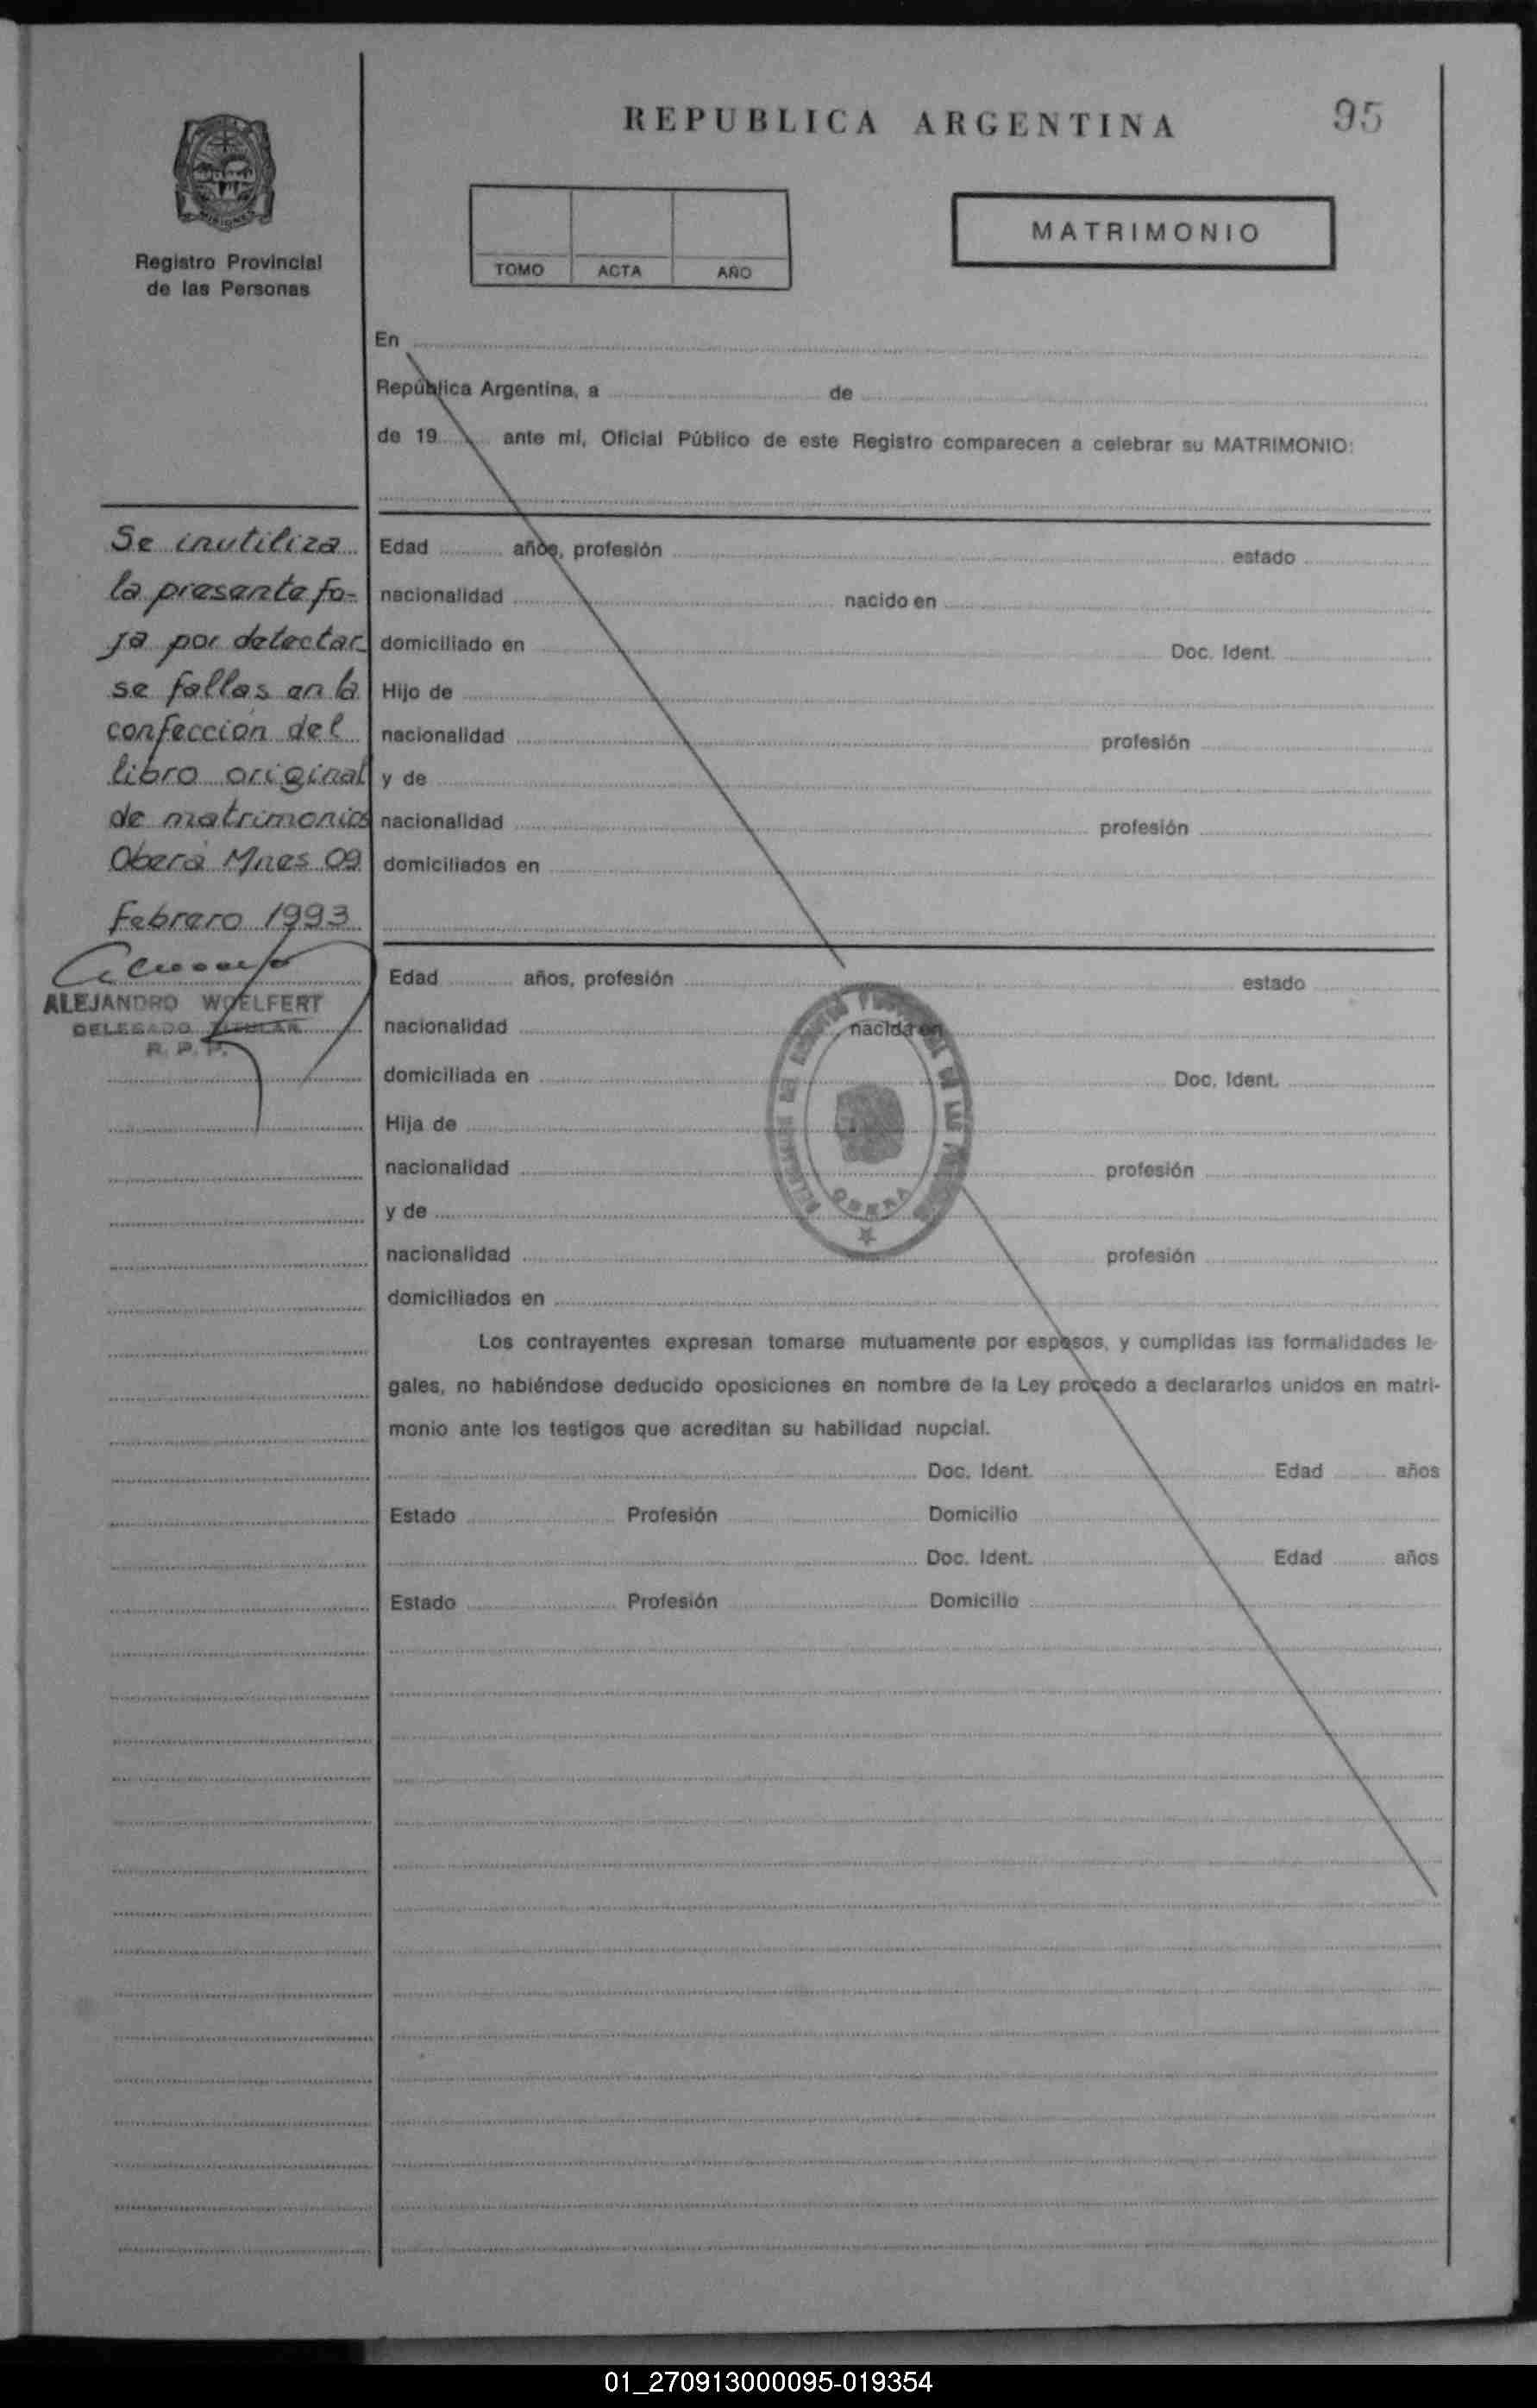 REPUBLICA ARGENTINA
95
Registro Provincial
de las Personas
TOMO ACTA AÑO
MATRIMONIO
En
República Argentina, a de
de 19 ante mí, Oficial Público de este Registro comparecen a celebrar su MATRIMONIO:
Se inutiliza
la presente fo-
ja por detectar
se fallas en la
confección del
libro original
de matrimonios
Oberá Mnes 09
Febrero 1993
ALEJANDRO WOELFERT
DELEGADO TITULAR
R. P. P.
Edad años, profesión estado
nacionalidad nacido en
domiciliado en Doc. Ident.
Hijo de
nacionalidad profesión
y de
nacionalidad profesión
domiciliados en
Edad años, profesión estado
nacionalidad nacida en
domiciliada en Doc. Ident.
Hija de
nacionalidad profesión
y de
nacionalidad profesión
domiciliados en
OBERA
Los contrayentes expresan tomarse mutuamente por esposos, y cumplidas las formalidades le-
gales, no habiéndose deducido oposiciones en nombre de la Ley procedo a declararlos unidos en matri-
monio ante los testigos que acreditan su habilidad nupcial.
Doc. Ident. Edad años
Estado Profesión Domicilio
Doc. Ident. Edad años
Estado Profesión Domicilio
01_270913000095-019354